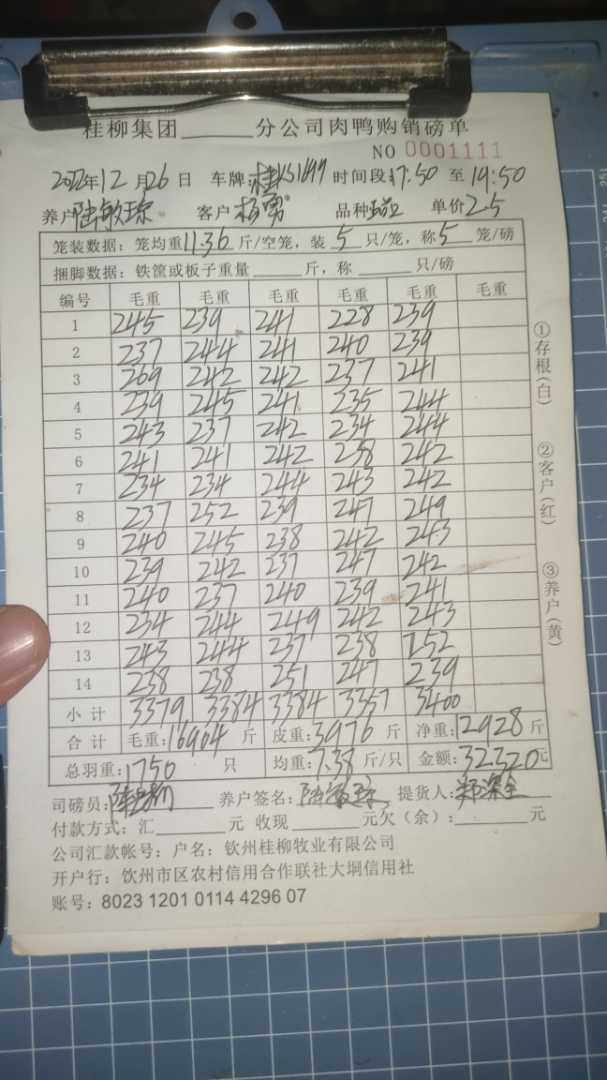 桂柳集团______分公司肉鸭购销磅单
NO 0001111
2022年12月26日 车牌:桂 时间段17:50 至 19:50
养户陆敏琼 客户杨勇 品种 单价2.5
笼装数据：笼均重11.36斤/空笼，装5只/笼，称5笼/磅
捆脚数据：铁筐或板子重量______斤，称______只/磅
编号 毛重 毛重 毛重 毛重 毛重 毛重
1 245 239 241 228 239
2 237 244 241 240 239
3 269 242 242 237 241
4 239 245 241 235 244
5 243 237 242 234 244
6 241 241 242 238 242
7 234 234 244 243 242
8 237 252 239 247 249
9 240 245 238 242 243
10 239 242 237 247 242
11 240 237 240 239 241
12 234 244 249 242 243
13 243 244 237 238 252
14 238 238 251 247 239
小计 3379 3384 3384 3357 3400
合计 毛重:16904斤 皮重:3976斤 净重:12928斤
总羽重:1750 只 均重:7.38斤/只 金额:32320元
司磅员: 养户签名:陆敏琼 提货人:
付款方式：汇______元 收现______元欠（余）:______元
公司汇款帐号：户名：钦州桂柳牧业有限公司
开户行：钦州市区农村信用合作联社大垌信用社
账号：8023 1201 0114 4296 07
①存根(白)
②客户(红)
③养户(黄)